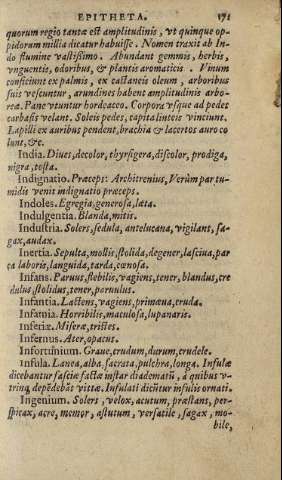 EPITHETA. 171
quorum regio tantæ est amplitudinis, vt quinque op-
pidorum millia dicatur habuisse. Nomen traxit ab In-
do flumine vastissimo. Abundant gemmis, herbis,
vnguentis, odoribus, & plantis aromaticis. Vinum
conficiunt ex palmis, ex castaneis oleum, arboribus
suis vescuntur, arundines habent amplitudinis arbo-
rea. Pane vtuntur hordeaceo. Corpora vsque ad pedes
carbasis velant. Soleis pedes, capita linteis vinciunt.
Lapilli ex auribus pendent, brachia & lacertos auro co
lunt, &c.
India. Diues, decolor, thyrsigera, discolor, prodiga,
nigra, tosta.
Indignatio. Præceps: Architrenius, Verùm par tu-
midis venit indignatio præceps.
Indoles. Egregia, generosa, læta.
Indulgentia. Blanda, mitis.
Industria. Solers, sedula, antelucana, vigilans, sa-
gax, audax.
Inertia. Sepulta, mollis, stolida, degener, lasciua, par
ca laboris, languida, tarda, cœnosa.
Infans. Paruus, flebilis, vagiens, tener, blandus, cre
dulus, stolidus, tener, paruulus.
Infantia. Lactens, vagiens, primæua, cruda.
Infamia. Horribilis, maculosa, lupanaris.
Inferiæ. Miseræ, tristes.
Infernus. Ater, opacus.
Infortunium. Graue, crudum, durum, crudele.
Insula. Lanea, alba, sacrata, pulchra, longa. Insulæ
dicebantur fasciæ factæ instar diadematũ, à quibus v-
trinq; depẽdebãt vittæ. Insulati dicũtur insulis ornati.
Ingenium. Solers, velox, acutum, præstans, per-
spicax, acre, memor, astutum, versatile, sagax, mo-
bile,